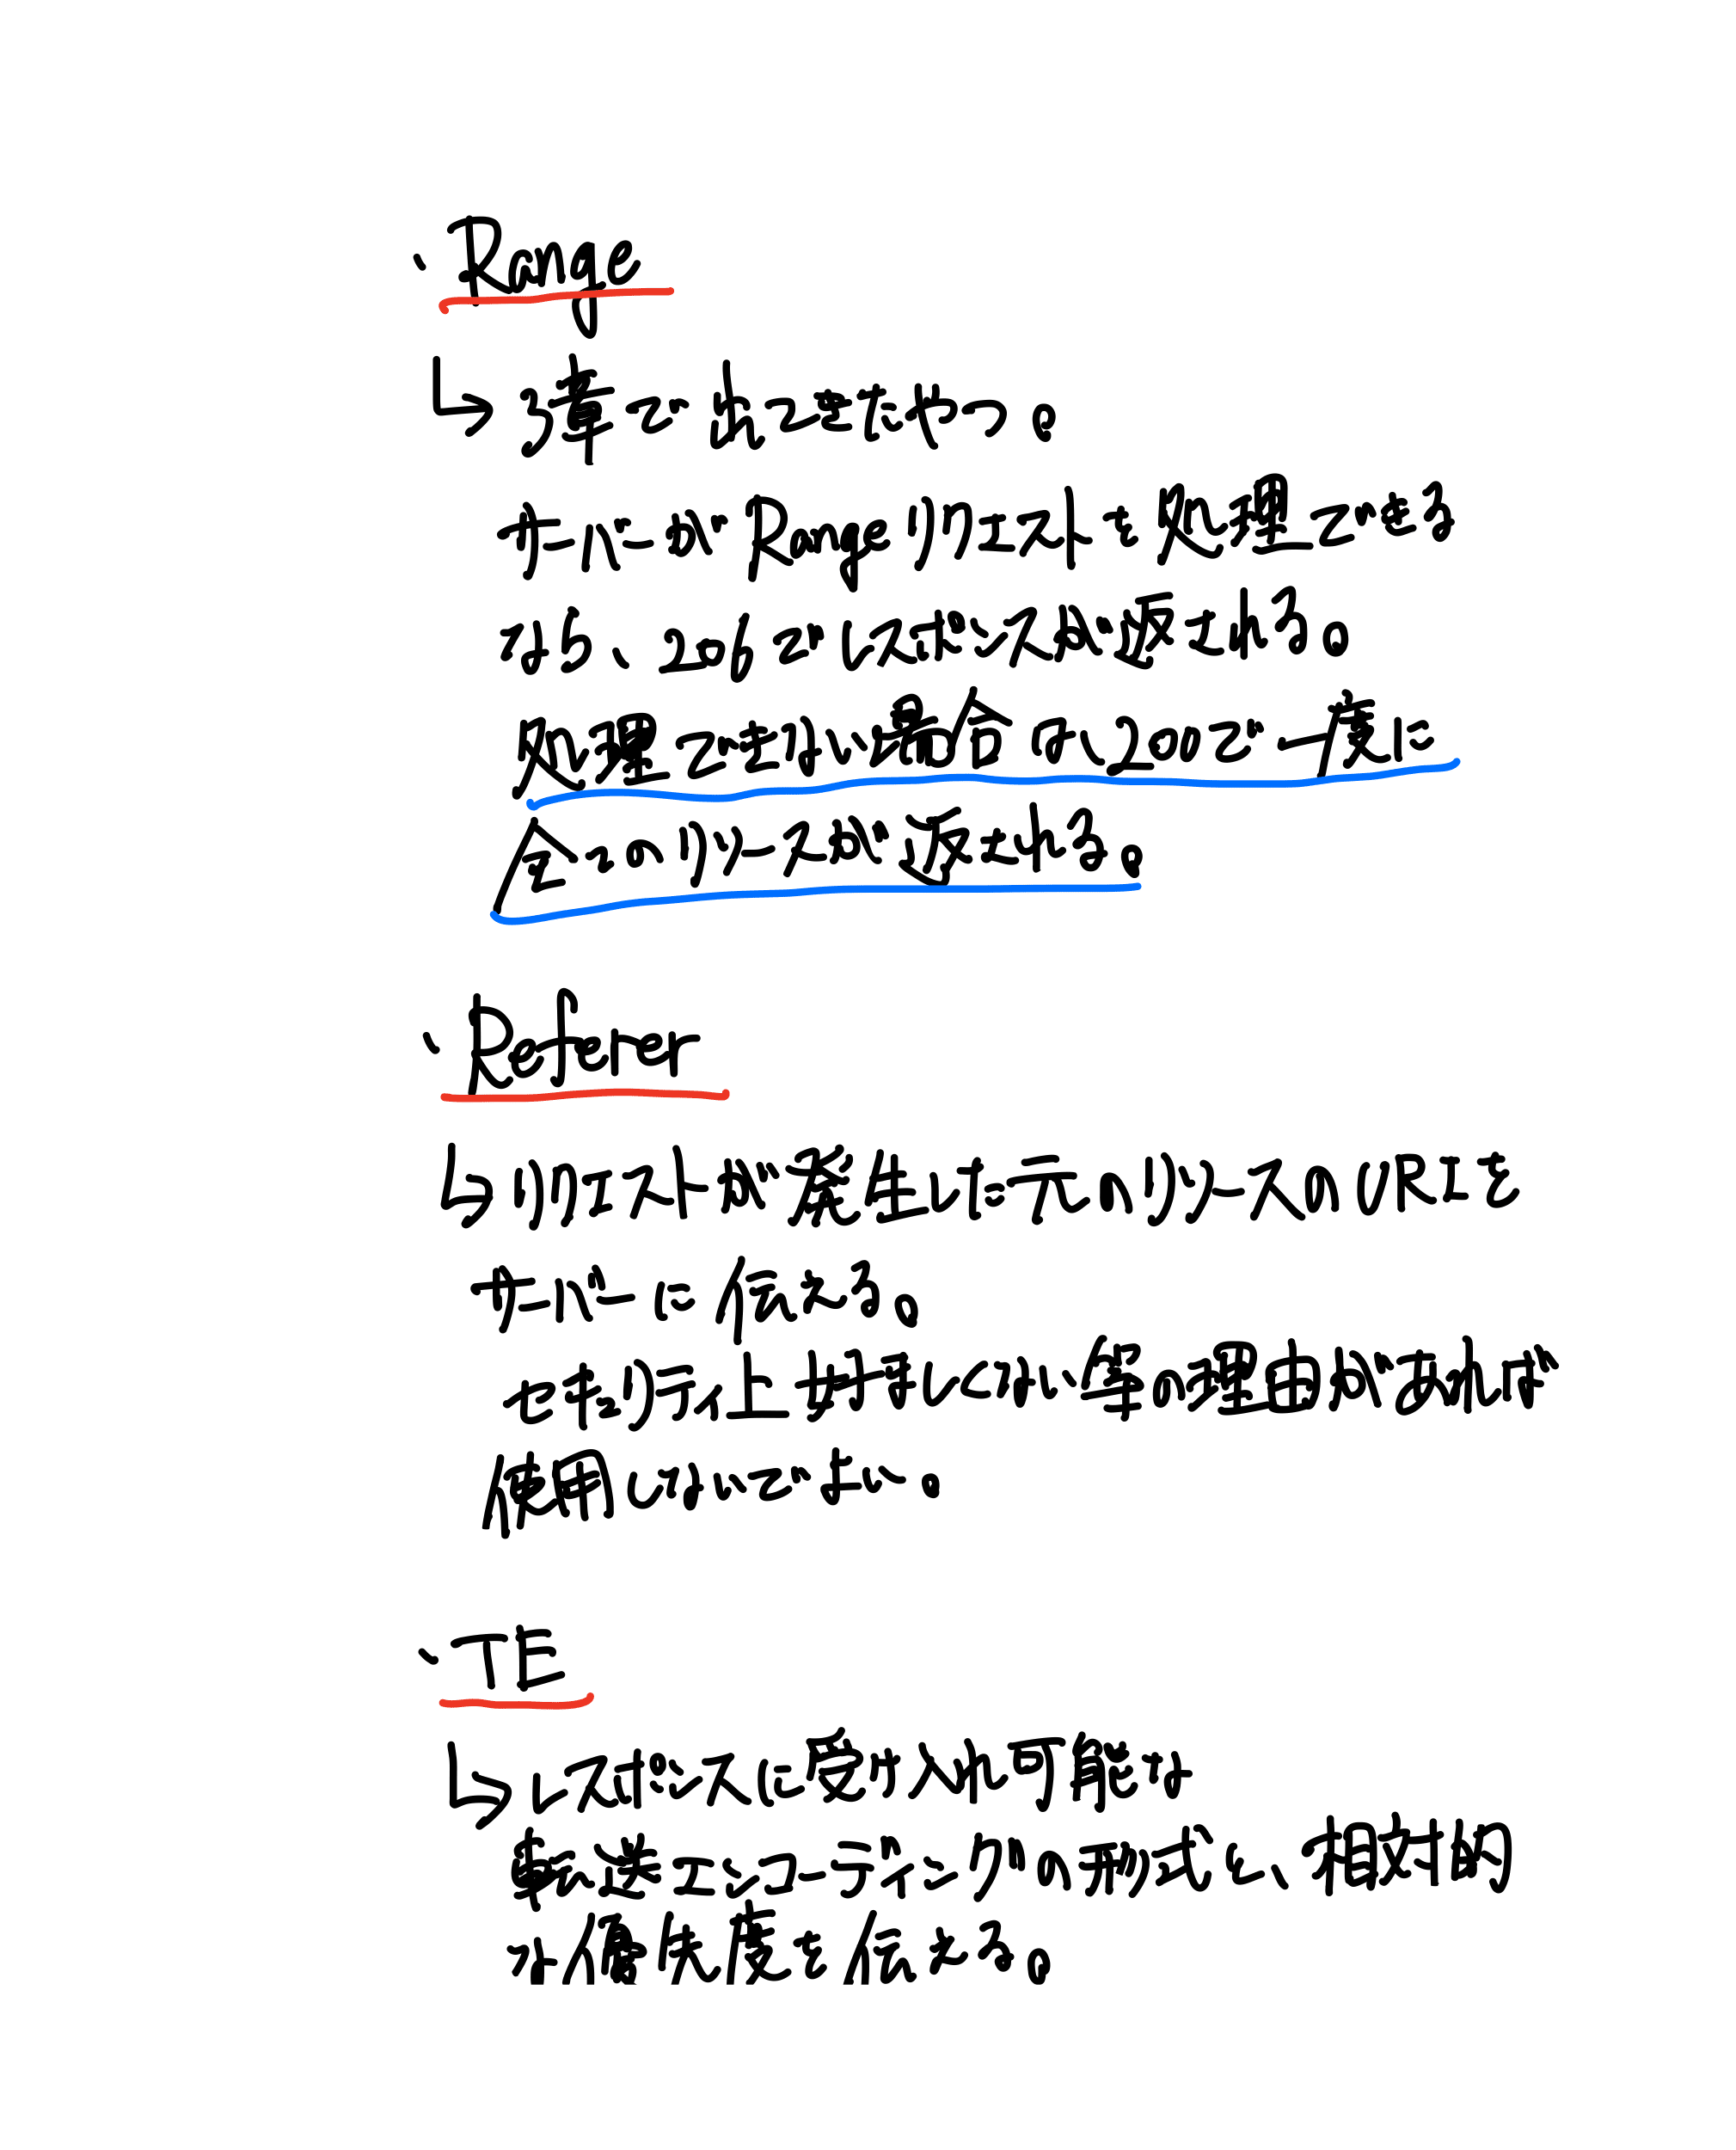 ・Range
↳ 3章でれてきたやつ。
サーバーがRangeリクエストを処理できる
なら、206でレスポンスが返される。
処理できない場合は、200で一度に
全てのリソースが返される。
・Referer
↳ リクエストが発生した元のリソースのURIを
サーバーに伝える。
セキュリティ上好ましくない等の理由があれば
使用しないでよい。
・TE
↳ レスポンスに受け入れ可能な
転送エンコーディングの形式と、相対的
な優先度を伝える。